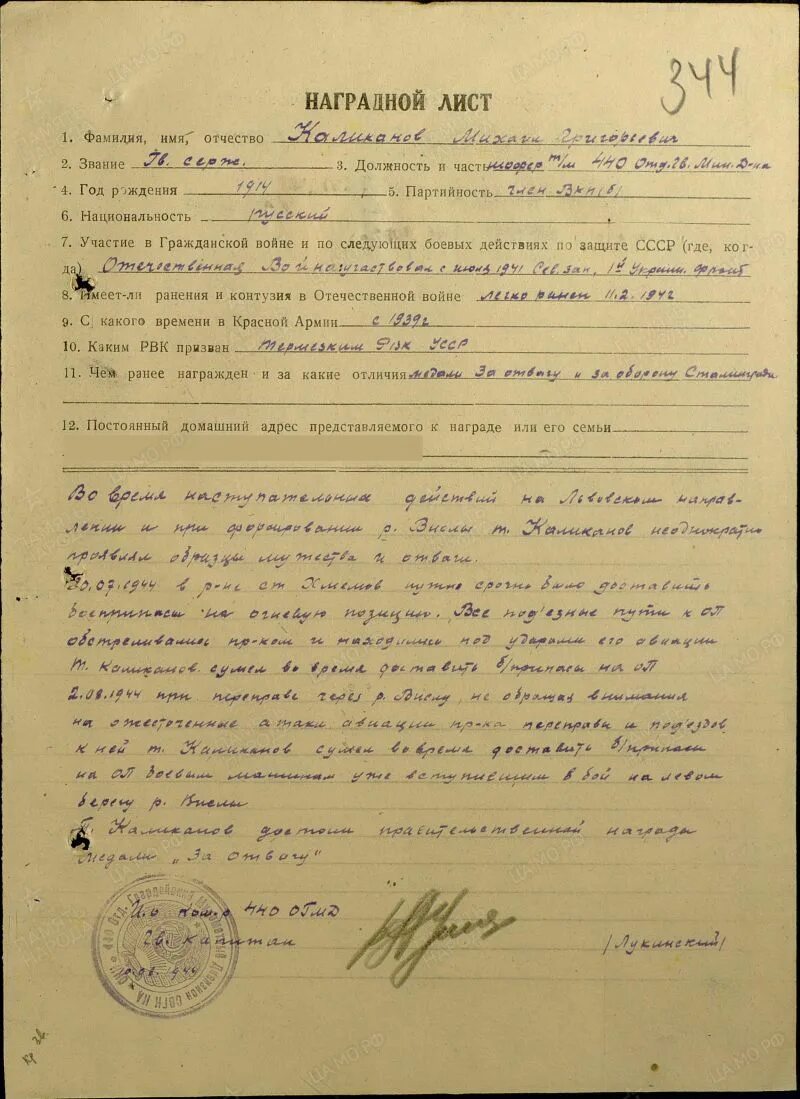 344
НАГРАДНОЙ ЛИСТ
1. Фамилия, имя, отчество Каликанов Михаил Григорьевич
2. Звание Гв. серж. 3. Должность и часть шофер т/м 440 Отд. Гв. Мин. Д-на
4. Год рождения 1914 5. Партийность член ВКП(б)
6. Национальность русский
7. Участие в Гражданской войне и по следующих боевых действиях по защите СССР (где, ког-
да) Отечественная Война участвовал с июля 1941 Сев. зап, 1й Украин. фронт
8. Имеет-ли ранения и контузия в Отечественной войне легко ранен 11.2.1942
9. С какого времени в Красной Армии с 1939г
10. Каким РВК призван Термезким РВК УССР
11. Чем ранее награжден и за какие отличия медали За отвагу и за оборону Сталинграда
12. Постоянный домашний адрес представляемого к награде или его семьи
Во время наступательных действий на Львовском направ-
лении и при форсировании р. Вислы т. Каликанов неоднократно
проявлял образцы мужества и отваги.
30.07.1944 в р-не ст Хмелов нужно срочно было доставить
боеприпасы на огневую позицию. Все под'езные пути к ОП
обстреливались пр-ком и находились под ударами его авиации
Т. Каликанов сумел во время доставить б/припасы на ОП
2.08.1944 при переправе через р. Вислу, не обращая внимания
на ожесточенные атаки авиации пр-ка переправы и под'ездов
к ней т. Каликанов сумел во время доставить б/припасы
на ОП боевым машинам уже вступившим в бой на левом
берегу р. Вислы
Т. Каликанов достоин правительственной награды
медали „За отвагу"
И.о ком-р 440 ОГМД
Гв. капитан
/Лукинский/
10.08.1944
440 Отд. Гвардейский Минометный Дивизион СВГК КА
ЦАМО.РФ